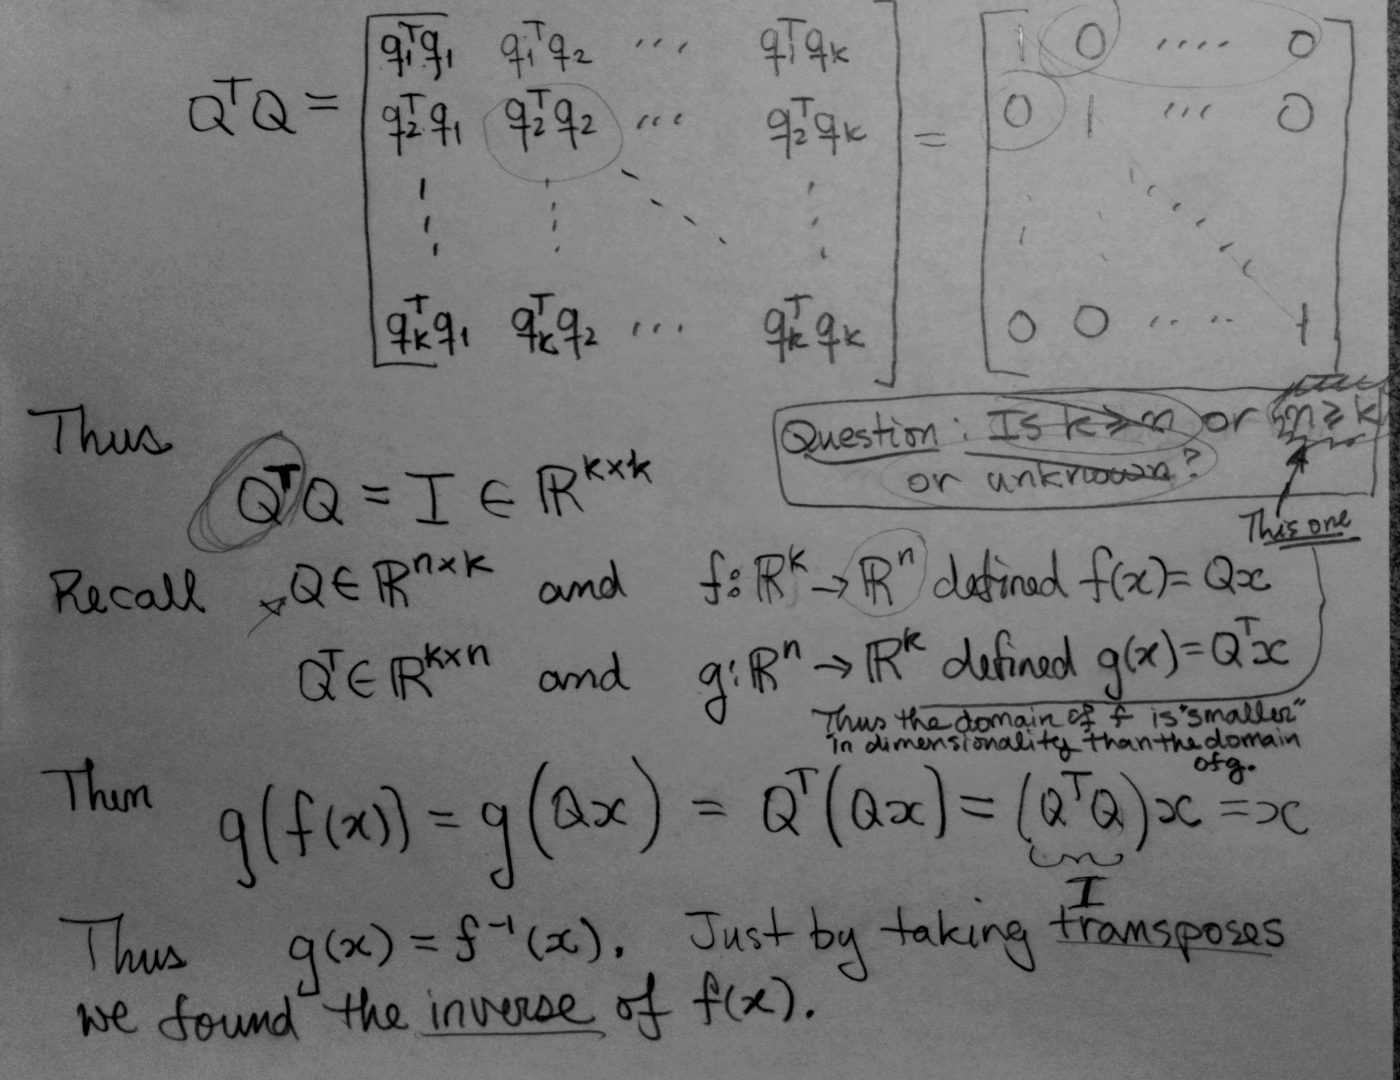 QᵀQ = [ q₁ᵀq₁ q₁ᵀq₂ ... q₁ᵀqₖ ] = [ 1 0 .... 0 ]
q₂ᵀq₁ q₂ᵀq₂ ... q₂ᵀqₖ 0 1 ... 0
qₖᵀq₁ qₖᵀq₂ ... qₖᵀqₖ 0 0 ..... 1
Thus
Question: Is k ≥ n or n ≥ k
or unknown?
QᵀQ = I ∈ ℝᵏˣᵏ
This one
Recall Q ∈ ℝⁿˣᵏ and f: ℝᵏ → ℝⁿ defined f(x) = Qx
Qᵀ ∈ ℝᵏˣⁿ and g: ℝⁿ → ℝᵏ defined g(x) = Qᵀx
Thus the domain of f is "smaller"
in dimensionality than the domain
of g.
Then g(f(x)) = g(Qx) = Qᵀ(Qx) = (QᵀQ)x = x
I
Thus g(x) = f⁻¹(x). Just by taking transposes
we found the inverse of f(x).